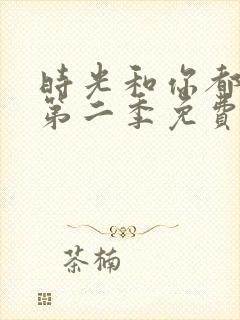 時光和你都
第二季免費
茶楠